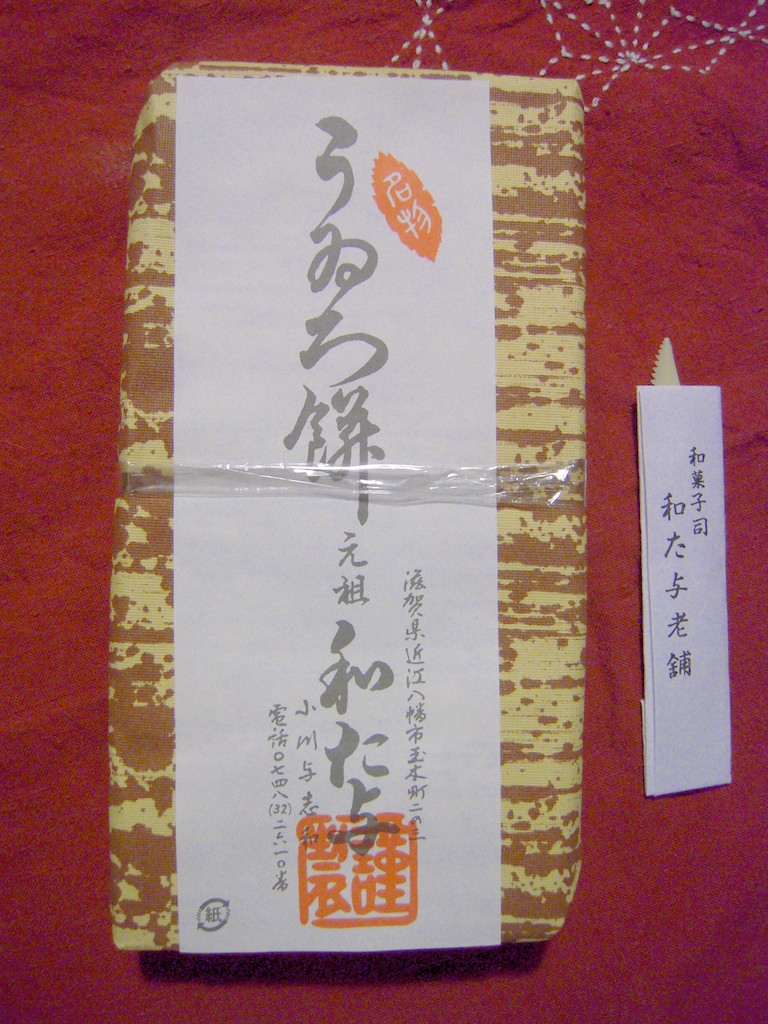 名物
うゐろ餅
元祖
和た与
滋賀県近江八幡市玉木町二の三
小川与志和
電話〇七四八(32)二六一〇番
謹製
紙
和菓子司
和た与老舗